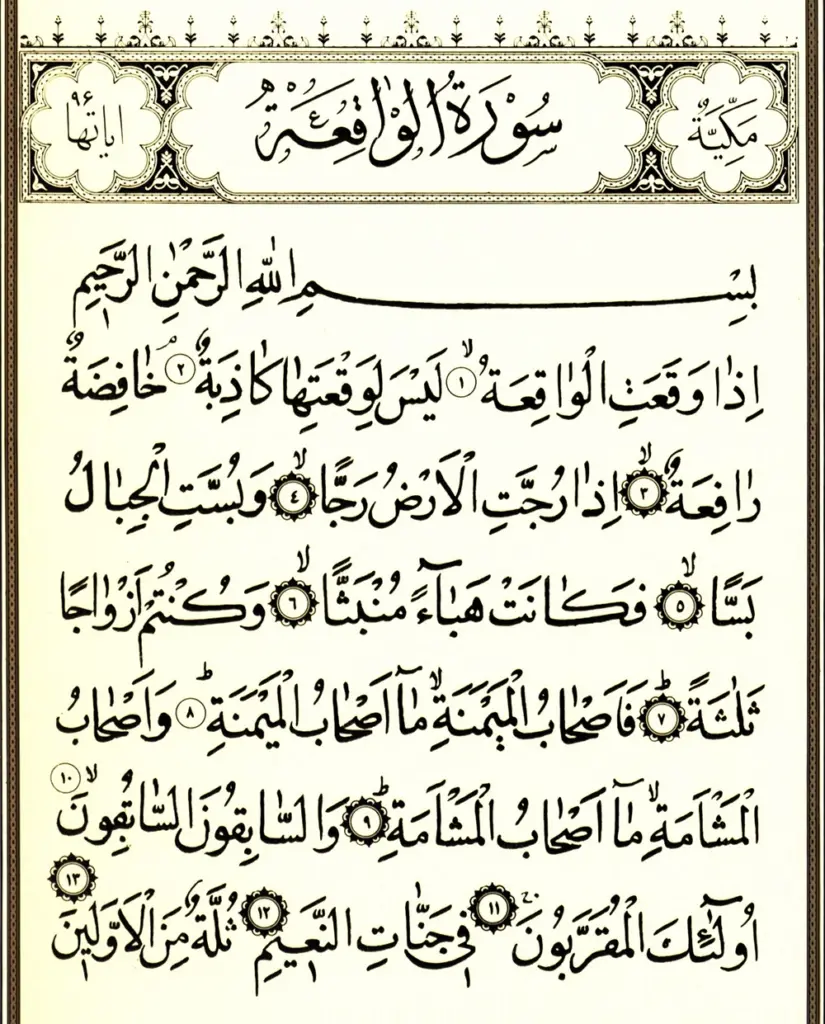 مَكِّيَّةٌ سُوْرَةُ الْوٰاقِعَةِ اٰيٰاتُهٰا ٩۶
بِسْمِ اللّٰهِ الرَّحْمٰنِ الرَّحٖيمِ
اِذٰا وَقَعَتِ الْوٰاقِعَةُ ۙ ﴿١﴾ لَيْسَ لِوَقْعَتِهٰا كٰاذِبَةٌ ۘ ﴿٢﴾ خٰافِضَةٌ
رٰافِعَةٌ ۙ ﴿٣﴾ اِذٰا رُجَّتِ الْاَرْضُ رَجًّا ۙ ﴿٤﴾ وَبُسَّتِ الْجِبٰالُ
بَسًّا ۙ ﴿٥﴾ فَكٰانَتْ هَبٰآءً مُنْبَثًّا ۙ ﴿٦﴾ وَكُنْتُمْ اَزْوٰاجًا
ثَلٰثَةً ؕ ﴿٧﴾ فَاَصْحٰابُ الْمَيْمَنَةِ ۙ مٰٓا اَصْحٰابُ الْمَيْمَنَةِ ؕ ﴿٨﴾ وَاَصْحٰابُ
الْمَشْاَمَةِ ۙ مٰٓا اَصْحٰابُ الْمَشْاَمَةِ ؕ ﴿٩﴾ وَالسّٰابِقُونَ السّٰابِقُونَ ۙ ﴿١٠﴾
اُولٰٓئِكَ الْمُقَرَّبُونَ ۚ ﴿١١﴾ فٖي جَنّٰاتِ النَّعٖيمِ ﴿١٢﴾ ثُلَّةٌ مِنَ الْاَوَّلٖينَ ﴿١٣﴾